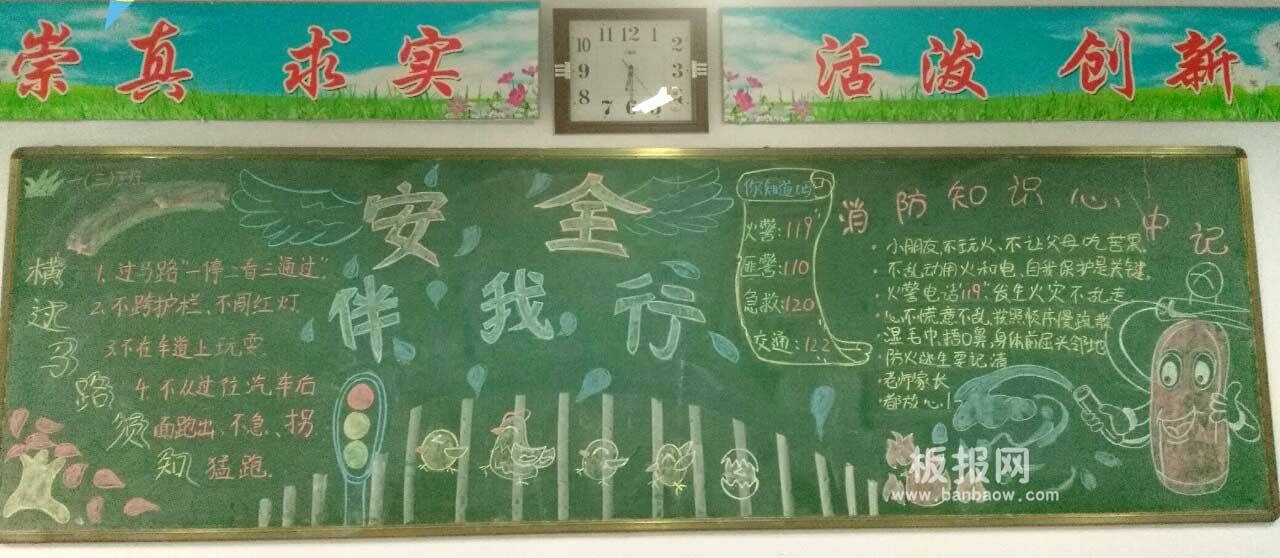 崇真 求实
活泼 创新
11 12 1
10 2
9 3
8
7 6
一(三)班
安全
伴我行
横过马路须知
1. 过马路"一停二看三通过"
2. 不跨护栏、不闯红灯
3 不在车道上玩耍
4. 不从过往汽车后
面跑出、不急、拐
猛跑.
你知道吗
火警:119
匪警:110
急救:120
交通:122
消防知识心中记
·小朋友,不玩火、不让父母吃苦果.
·不乱动用火和电、自我保护是关键.
·火警电话"119"发生火灾不乱走
·心不慌意不乱,按照顺序慢疏散
·湿毛巾、捂口鼻,身体前屈头邻地
·防火逃生要记清
·老师家长
都放心!
板报网
www.banbaow.com